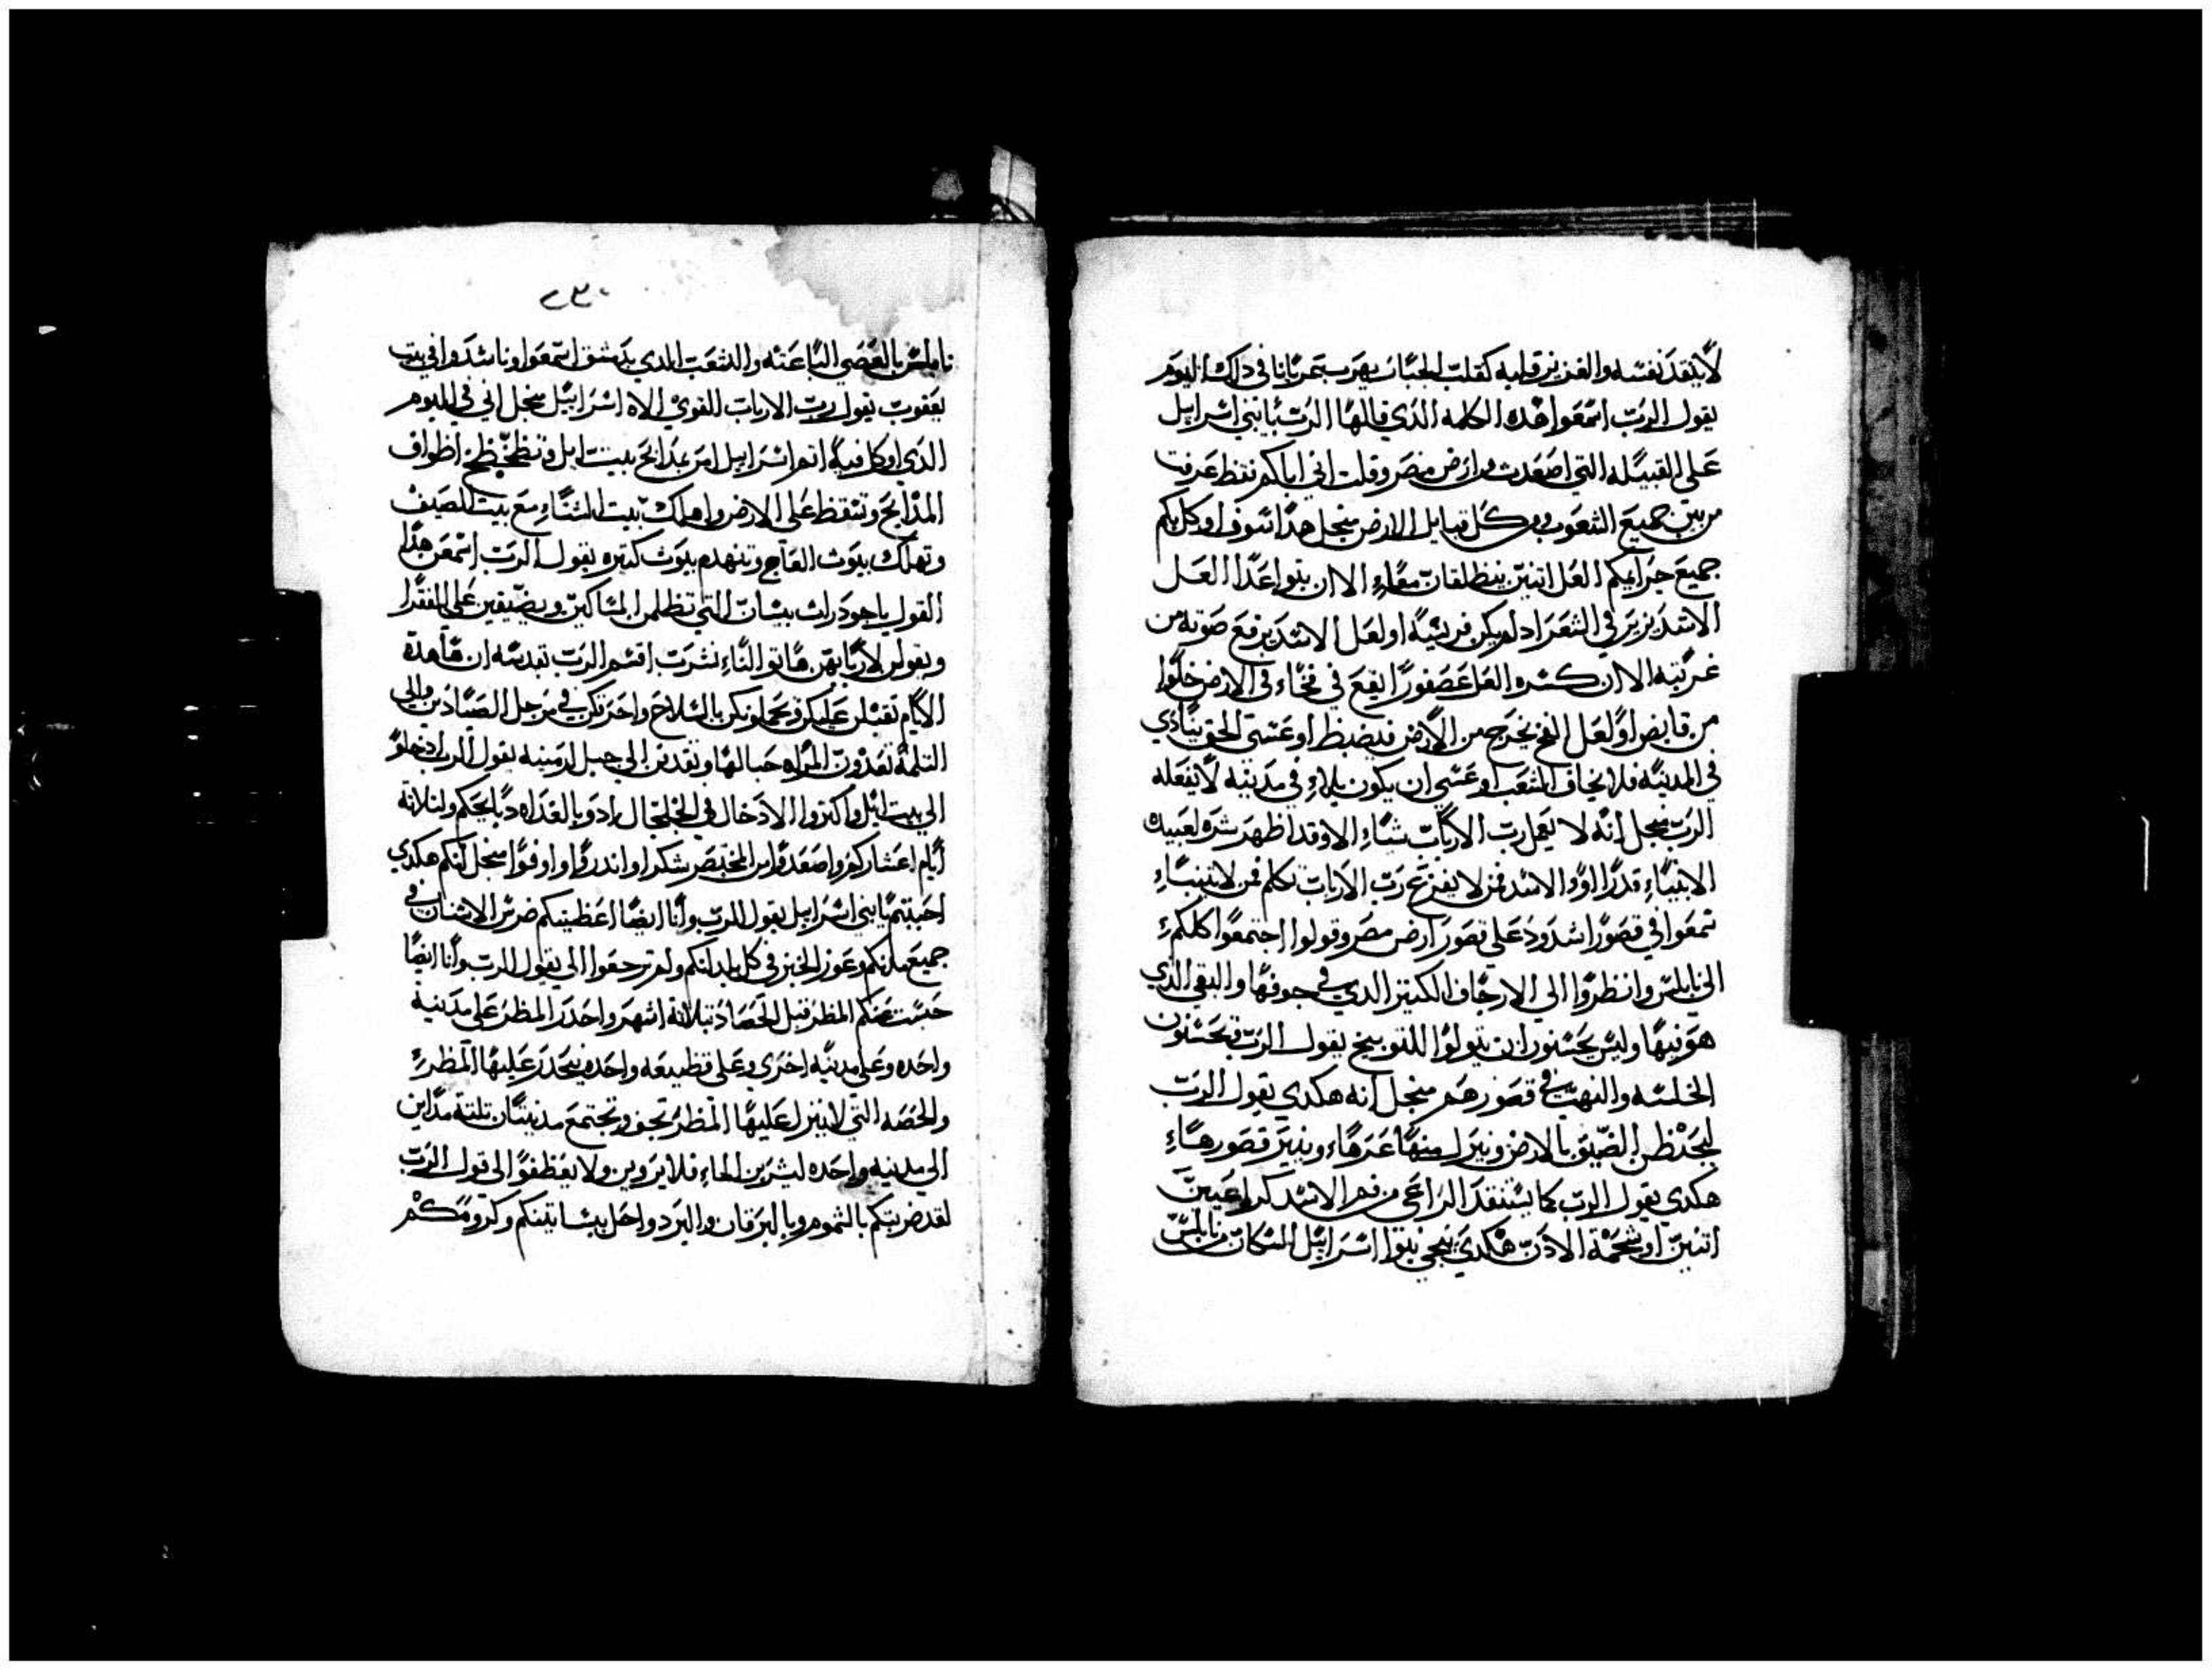 لاينقد نفسه والغزير قلبه كقلب الجبار يهرب تمر يانا في داك اليوم
يقول الرب اسمعوا هده الكلمه الدي قالها الرب يا بني اسراييل
على القبيله التي اصعدت من ارض مصر وقلت اني اياكم نقط عرفت
من بين جميع الشعوب ومن كل قبايل الارض منجل هدا سوف اوكل بكم
جميع جرايمكم العل اتنين ينطلقان معاء الا ان يتواعدا العل
الاسد يزير في الشعرا اد لم يكن فريسه او لعل الاسد يرفع صوته من
غربته الا ان كسر والعل عصفورا يقع في فخاء في الارض خلوا
من قابض او لعل الفخ يخرج من الارض فيضبط او عسى الحق ينادي
في المدينه فلا يخاف الشعب او عسى ان يكون بلاء في مدينه لايفعله
الرب منجل انه لا يعمل رب الارباب شاء الا وقد اظهر سره لعبيده
الانبياء قد زاروا الاسد فمن لا يفزع رب الارباب تكلم فمن لا يتنباء
تمعوا في قصور اشدود على قصور ارض مصر وقولوا اجتمعوا كلكم
الى نابلس وانظروا الى الارجاف الكبير الدي في جوفها والبقي الدي
هو فيها وليس يحسنون ان يقولوا للتوبيخ يقول الرب يحسنون
الخلسه والنهب في قصورهم منجل انه هكدي يقول الرب
ليحدطن الضيق بالارض وينزل منها عزها وينير قصورهاء
هكدي يقول الرب كما يستنقد الراعي من فم الاسد كراعين
اتنين او شحمة الادن هكدي ينجي بنوا اسراييل السكان من نابلس
٢٣٠
نابلس بالعصي الباعته والشعب الدي بدمشق اسمعوا وناشدوا في بيت
يعقوب يقول رب الارباب القوي الاه اسراييل منجل اني في اليوم
الدي اوكل فيه اتم اسراييل امر عدايح بيت ايل وتطحطح اطواف
المدابح وتسقط على الارض واهلك بيت الشتاء مع بيت الصيف
وتهلك بيوت العاج وتنهدم بيوت كتيره يقول الرب اسمعن هدا
القول ياجودرات بيسان التي تظلمن المساكين ويضيقين على الفقرا
ويقولن لاربابهن هاتوا الناء نشرب اقسم الرب بقدسه ان هاهدة
الايام تقبلن عليكن ويحملونكن بالسلاح واحرتكن في مرجل الصيادين والى
التلمة تعدون المراه حيالها وتقدفن الى جبل ارمينه يقول الرب ادخلوا
الى بيت ايل واكتروا الادخال في الجلجال ادو بالغداه دبايحكم ولتلاته
ايام اعشاركم واصعدوا من المختمر شكرا واندروا واوفوا منجل انكم هكدي
احببتم يا بني اسراييل يقول الرب وانا ايضا اعطيتكم ضرس الاسنان في
جميع مدنكم وعوز الخبز في كل بلدانكم ولم ترجعوا الي يقول الرب وانا ايضا
حبست عنكم المطر قبل الحصاد بتلاته اشهر واحدر المطر على مدينه
واحده وعلى مدينه اخرى وعلى قطيعه واحده ينحدر عليها المطر
والحصه التي لاينزل عليها المطر تجف وتجتمع مدينتان تلتة مداين
الى مدينه واحده ليشربن الماء فلا يروين ولا يعطفوا الى قول الرب
لقد ضربتكم بالشموم وبالبرقان والبرد واحل بيساتينكم وكرومكم